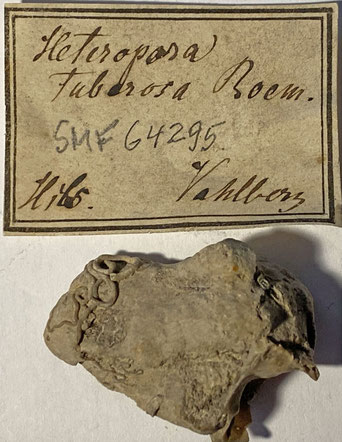 Heteropora
tuberosa Roem.
SMF 64295.
Hils. Vahlberg